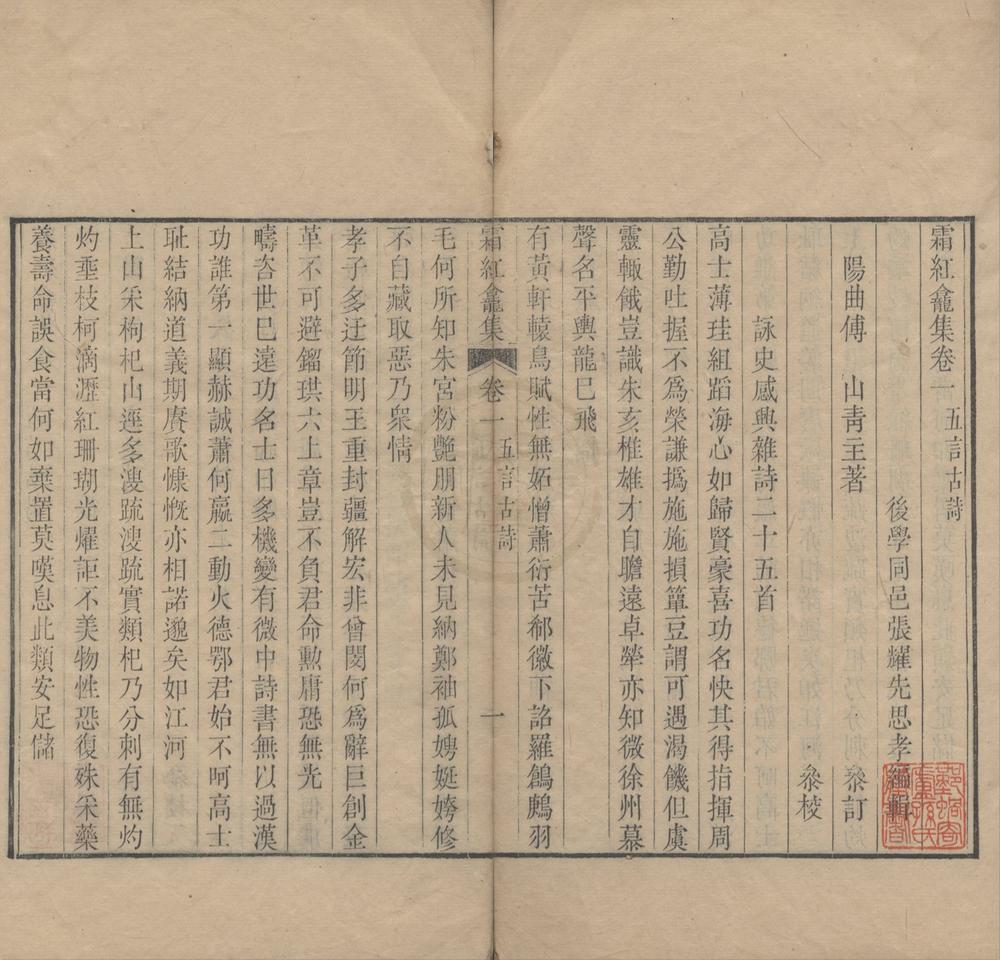 霜紅龕集卷一　五言古詩
後學同邑張耀先思孝編輯
陽曲傅　山青主著　叅訂
叅校
詠史感興雜詩二十五首
高士薄珪組蹈海心如歸賢豪喜功名快其得指揮周
公勤吐握不爲榮謙撝施施損簞豆謂可遇渴饑但虞
靈輒餓豈識朱亥椎雄才自瞻遠卓犖亦知微徐州慕
聲名平輿龍巳飛
有黃軒轅鳥賦性無妬憎蕭衍苦郗徽下詔羅鶬鷓羽
霜紅龕集　卷一　五言古詩　一
毛何所知朱宮粉艷朋新人未見納鄭袖孤娉娫姱修
不自藏取惡乃衆情
孝子多迂節明王重封疆解宏非曾閔何爲辭巨創金
革不可避鎦珙六上章豈不負君命勲庸恐無光
疇咨世巳遠功名士日多機變有微中詩書無以過漢
功誰第一顯赫誠蕭何嬴二動火德鄂君始不呵高士
耻結納道義期賡歌慷慨亦相諾邈矣如江河
上山采枸杞山逕多溲疏溲疏實類杞乃分刺有無灼
灼埀枝柯滴瀝紅珊瑚光耀詎不美物性恐復殊采藥
養壽命誤食當何如棄置莫嘆息此類安足儲